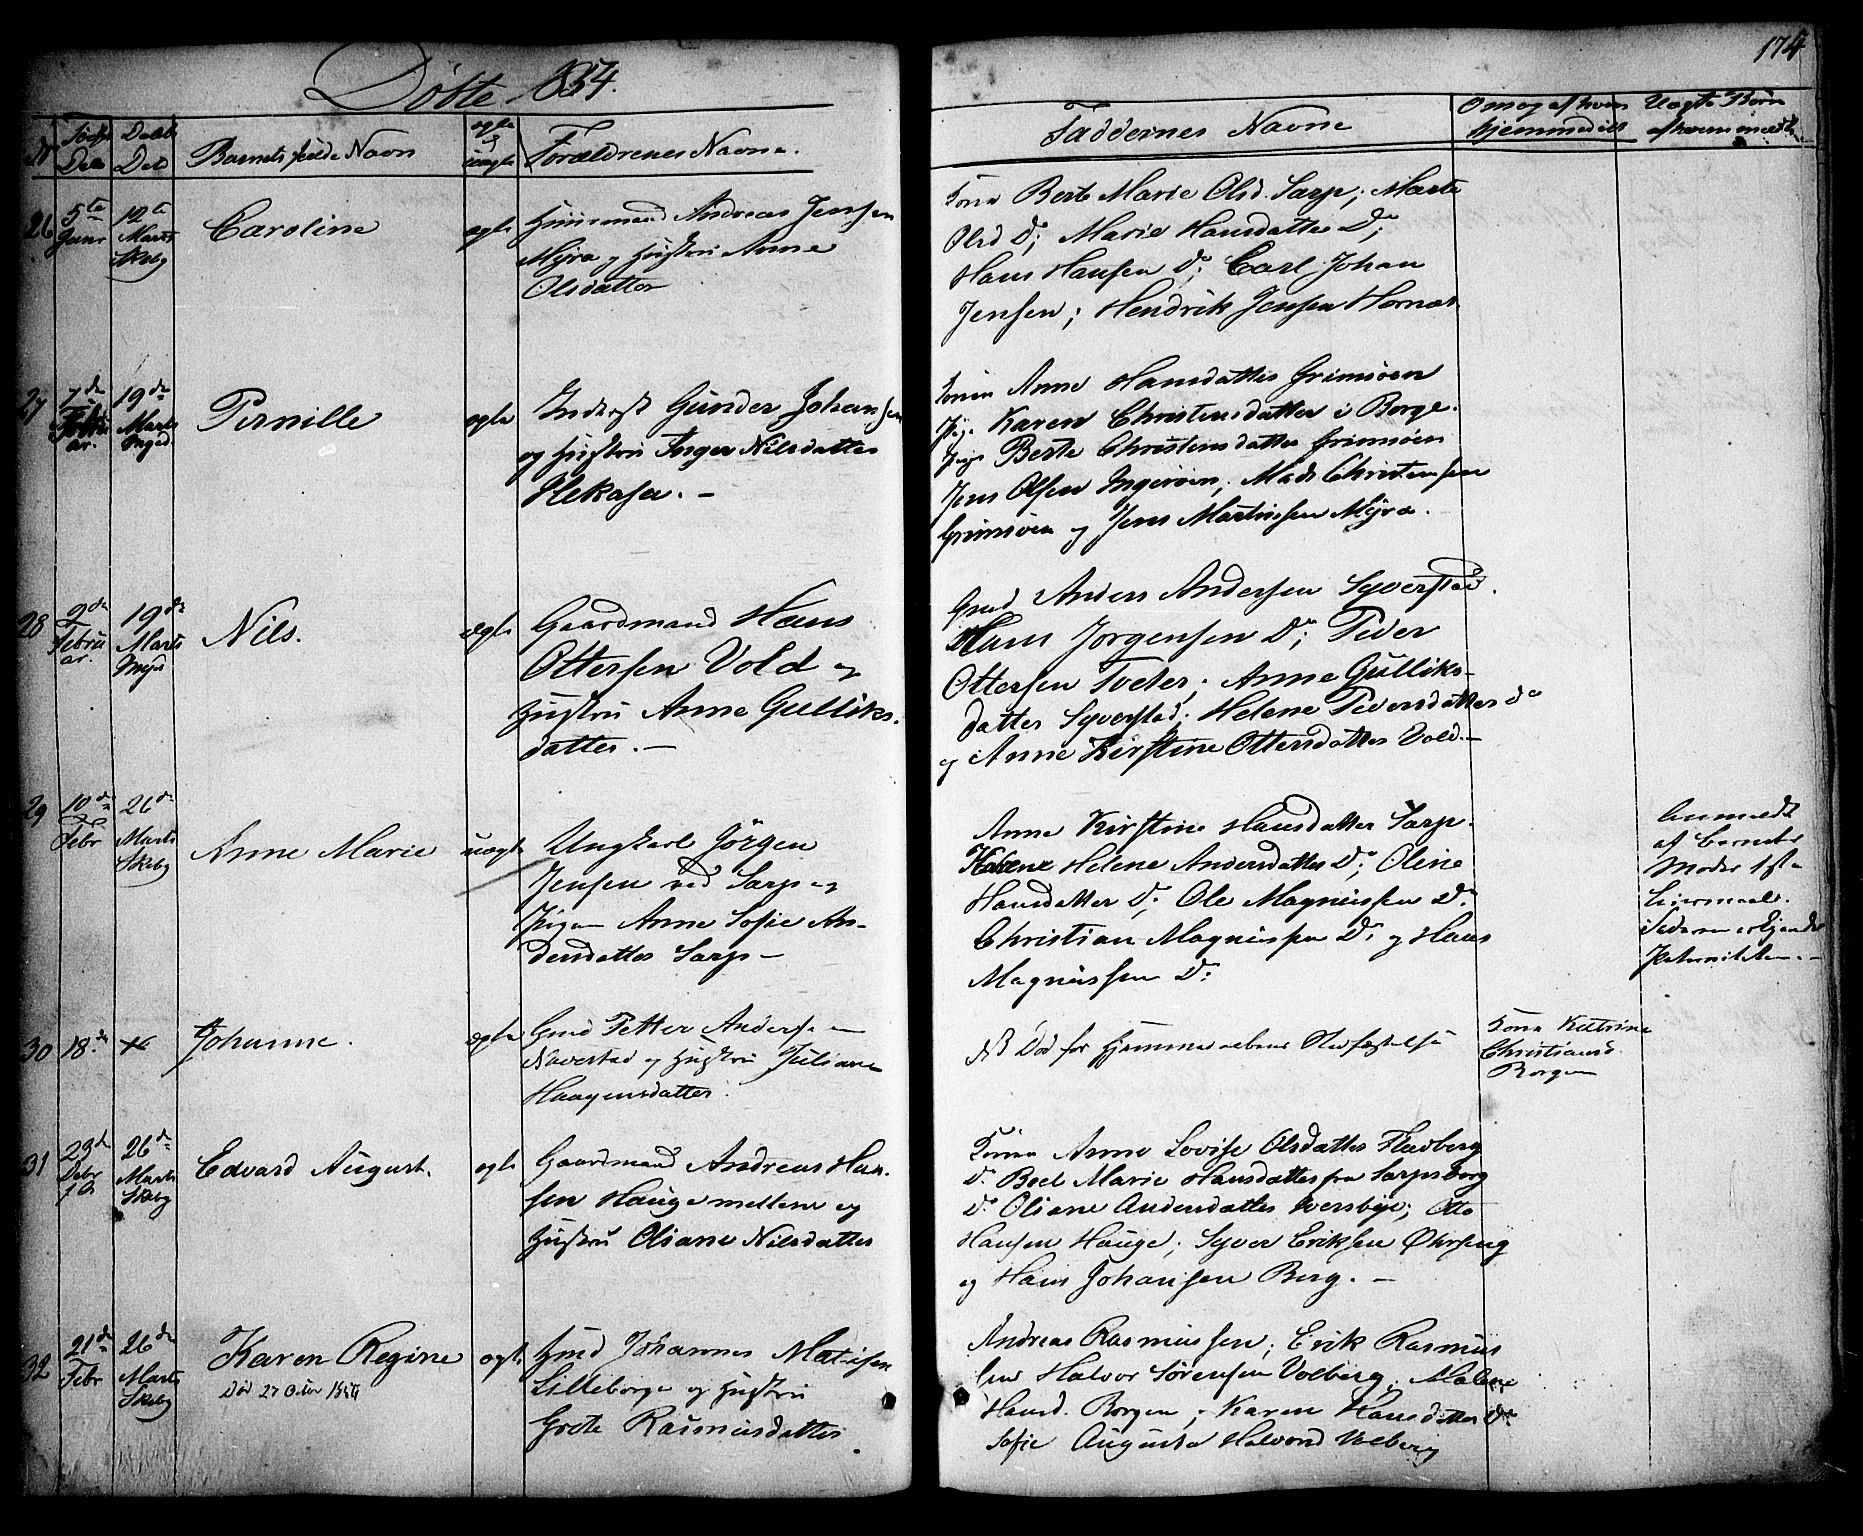 Døbte 1854.
174
N
Føds. Dato
Daabs Dato
Barnets fulde Navn
ægte og uægte
Forældrenes Navne.
Faddernes Navne
Om og af hvem hjemmedøbt
Uægte Børn af hvem meldt
26
5te Janr
12te Marts Skebg
Caroline
ægte
Huusmand Andreas Jensen
Myra og Hustru Anne
Olsdatter
Kone Berte Marie Olsd. Sarp; Marte
Olsd Do; Marie Hansdatter Do;
Hans Hansen Do; Carl Johan
Jensen; Hendrik Jensen Hornæs
27
7de Februar.
19de Marts Inged
Pernille
ægte
Inderst Gunder Johansen
og Hustru Inger Nilsdatter
Hekasa. –
Konen Anne Hansdatter Grimsøen
Pige Karen Christensdatter i Borge.
Pige Berte Christensdatter Grimsøen
Jens Olsen Ingerøen; Mads Christensen
Grimsøen og Jens Martinsen Myra.
28
9de Februar.
19de Marts
Nils.
ægte
Gaardmand Hans
Ottersen Vold og
Hustru Anne Gulliks-
datter. –
Gmd Anders Andersen Syverstad.
Hans Jørgensen Do; Peder
Ottersen Tveter; Anne Gulliks-
datter Syverstad; Helene Pedersdatter do
og Anne Kirstine Ottersdatter Vold. –
29
10de Febr
26de Marts Skebg
Anne Marie
uægte
Ungkarl Jørgen
Jensen ved Sarp og
Pigen Anne Sofie An-
dersdatter Sarp –
Anne Kirstine Hansdatter Sarp.
Helene Andersdatter Do; Oline
Hansdatter Do; Ole Magnussen Do
Christian Magnussen Do; og Hans
Magnussen Do:
Anmeldt
af Barnets
Moder 1ste
Leiermaal.
Faderen erkjender
Paterniteten. –
30
18de
Johanne.
ægte
Gmd Petter Andersen
Navestad og Hustru Juliane
Haagensdatter.
NB Død før Hjemmedaabens Stadfæstelse
Kone Katrine
Christiansd.
Borgen
31
23de Debr
26de Marts Skebg
Edvard August.
ægte
Gaardmand Andreas Han-
sen Hauge mellem og
Hustru Oliane Nilsdatter
Konen Anne Lovise Olsdatter Fladberg
Do Boel Marie Hansdatter fra Sarpsborg
Do Oliane Andersdatter Iversbye; Otto
Hansen Hauge; Syver Eriksen
og Hans Johansen Berg. –
32
21de Febr
26de Marts Skebg
Karen Regine
Død 27 1854
ægte
Gmd Johannes Matisen
Lilleborge og Hustru
Grete Rasmusdatter.
Andreas Rasmussen; Erik Rasmus
sen Halvor Sørensen Volberg; Malene
Hansd. Borgen; Karen Hansdatter Do
Sofie Augusta Halvorsd Volberg